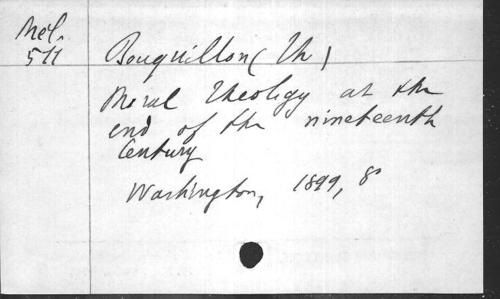 Mél.
511
Bouquillon (Th)
Moral Theology at the
end of the nineteenth
Century
Washington, 1899, 8°